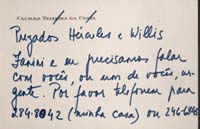 Prezados Hércules e Willis
Fanini e eu precisamos falar
com vocês, ou um de vocês, ur-
gente. Por favor telefonem para
284-8042 (minha casa) ou 246-